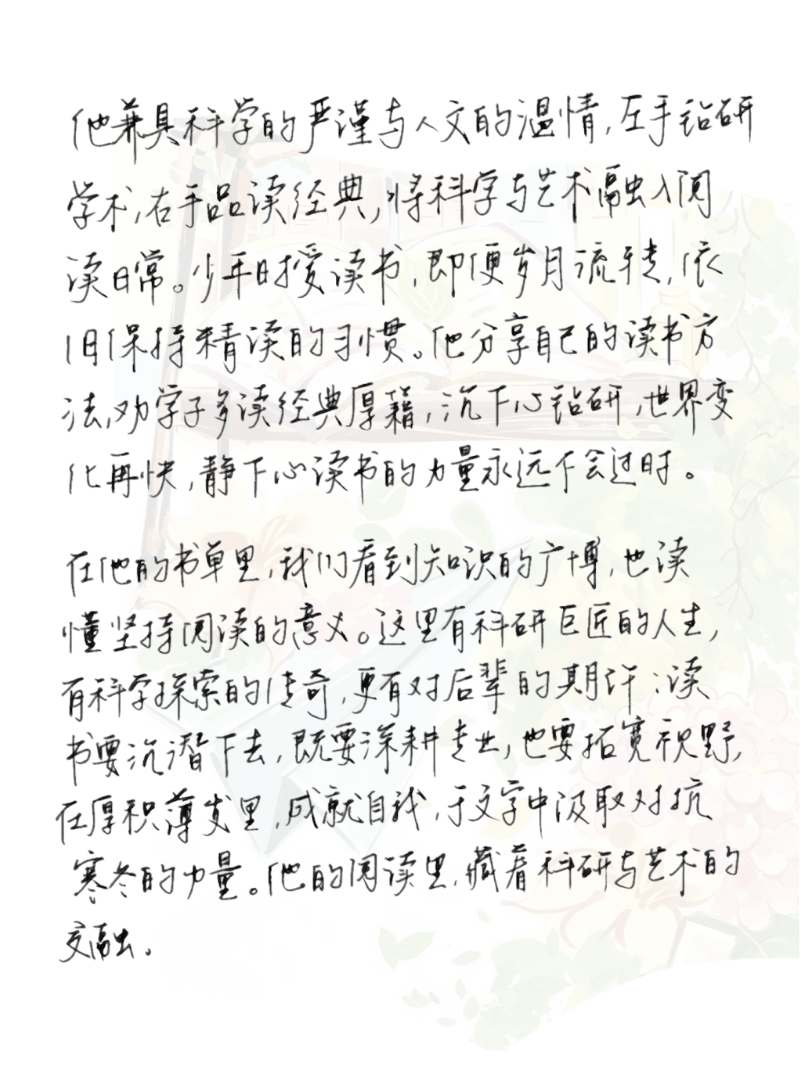 他兼具科学的严谨与人文的温情,左手钻研
学术,右手品读经典,将科学与艺术融入阅
读日常。少年时爱读书,即便岁月流转,依
旧保持精读的习惯。他分享自己的读书方
法,劝学子多读经典厚籍,沉下心钻研,世界变
化再快,静下心读书的力量永远不会过时。
在他的书单里,我们看到知识的广博,也读
懂坚持阅读的意义。这里有科研巨匠的人生,
有科学探索的传奇,更有对后辈的期许:读
书要沉潜下去,既要深耕专业,也要拓宽视野,
在厚积薄发里,成就自我,于文字中汲取对抗
寒冬的力量。他的阅读里,藏着科研与艺术的
交融。